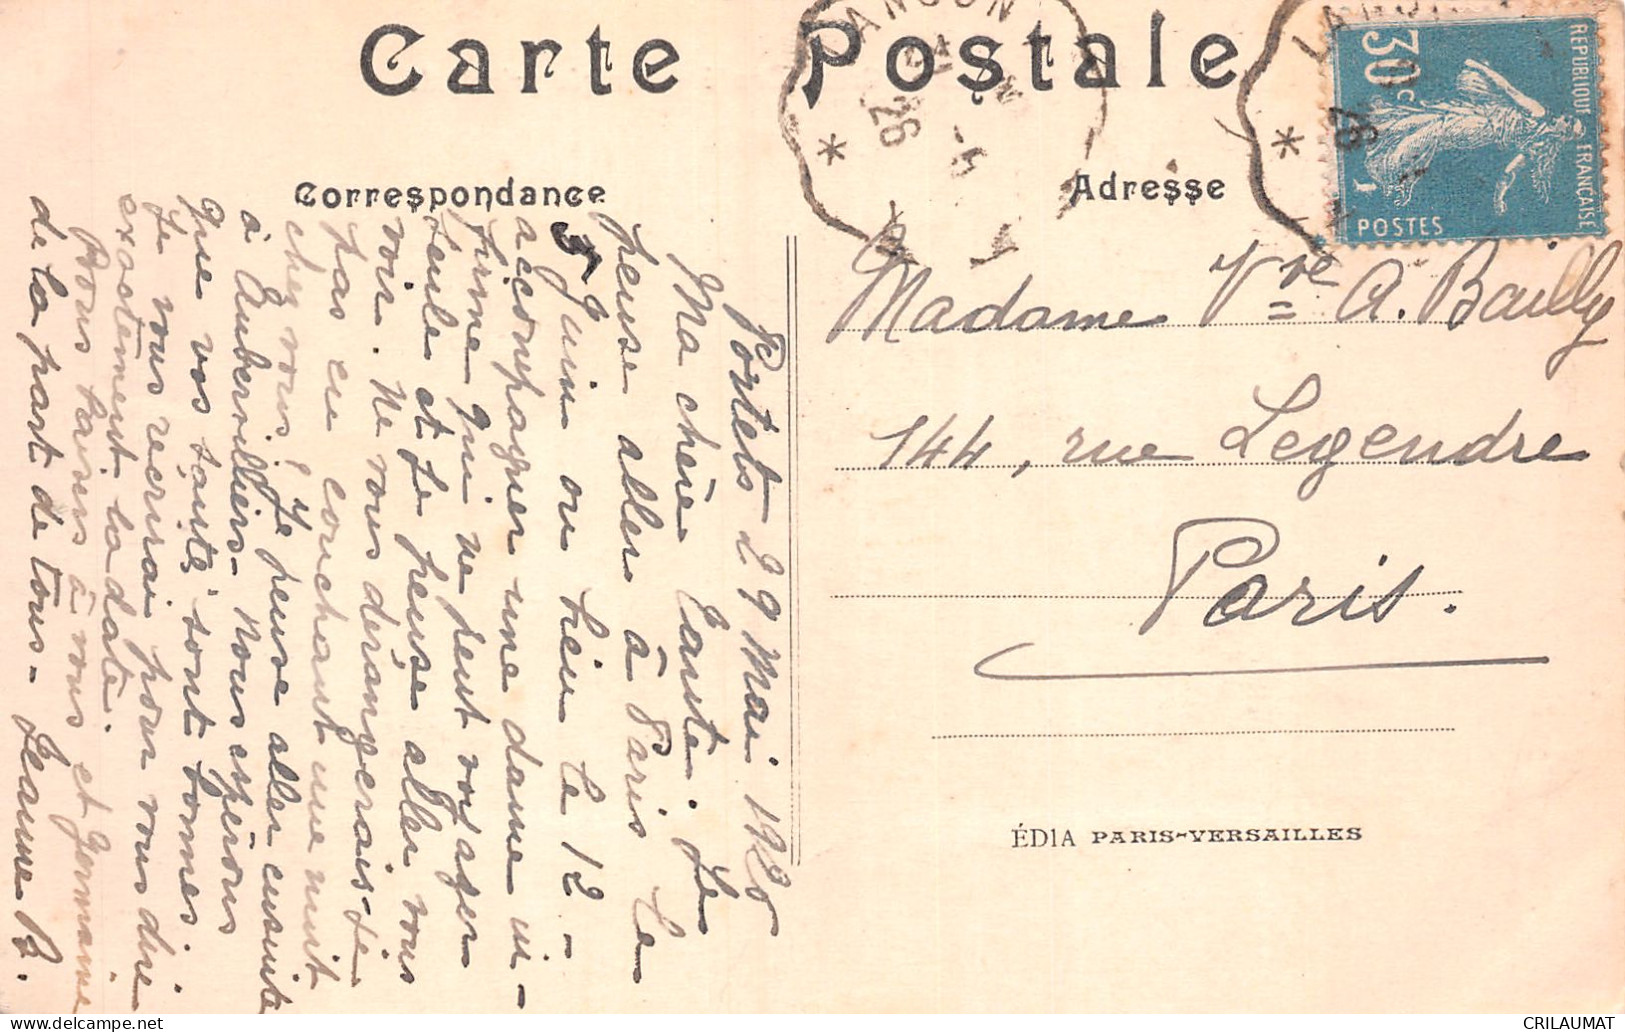 Carte Postale
Correspondance
Adresse
30c
REPUBLIQUE FRANÇAISE
POSTES
26
26
Portets 29 Mai 1926
Ma chère tante. Je
pense aller à Paris le
5 Juin ou bien le 12 -
accompagner une dame in-
firme qui ne peut voyager
seule et je pense aller vous
voir. Ne vous dérangerais-je
pas en couchant une nuit
chez vous? Je pense aller ensuite
à Aubervilliers. Nous espérons
que vos santés sont bonnes.
Je vous récrirai pour vous dire
exactement la date.
Bons baisers à vous et Germaine
de la part de tous. Jeanne B.
Madame Vve A. Bailly
144, rue Legendre
Paris.
ÉDIA PARIS-VERSAILLES
CRILAUMAT